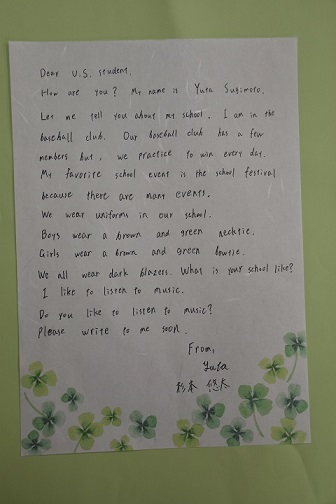 Dear U.S. student,
How are you? My name is Yuta Sugimoto.
Let me tell you about my school. I am in the
baseball club. Our baseball club has a few
members but, we practice to win every day.
My favorite school event is the school festival
because there are many events.
We wear uniforms in our school.
Boys wear a brown and green necktie.
Girls wear a brown and green bowtie.
We all wear dark blazers. What is your school like?
I like to listen to music.
Do you like to listen to music?
Please write to me soon.
From,
Yuta
杉本 悠太